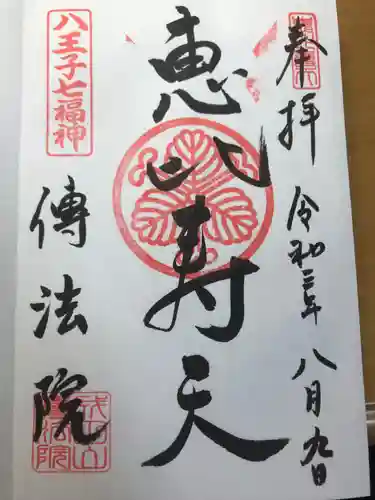 奉拝
令和三年八月九日
恵比寿天
八王子七福神
傳法院